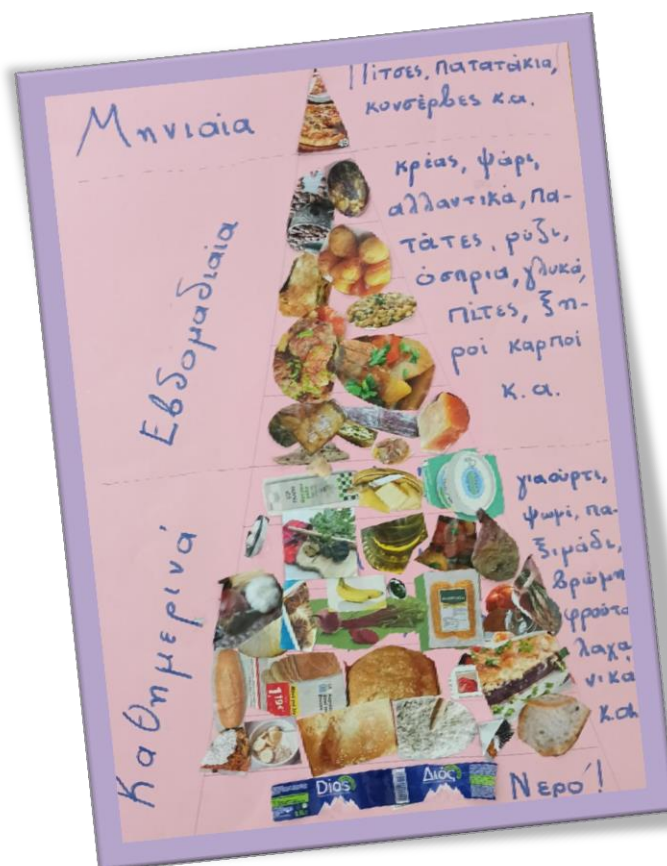 Μηνιαία
Πίτσες, Πατατάκια,
κονσέρβες κ.α.
Εβδομαδιαία
κρέας, ψάρι,
αλλαντικά, πα-
τάτες, ρύζι,
όσπρια, γλυκά,
πίτες, ξη-
ροί καρποί
κ.α.
Καθημερινά
γιαούρτι,
ψωμί, πα-
ξιμάδι,
βρώμη
φρούτα
λαχα
νικά
κ.α
1.19€
Dios
Διός
Νερό!